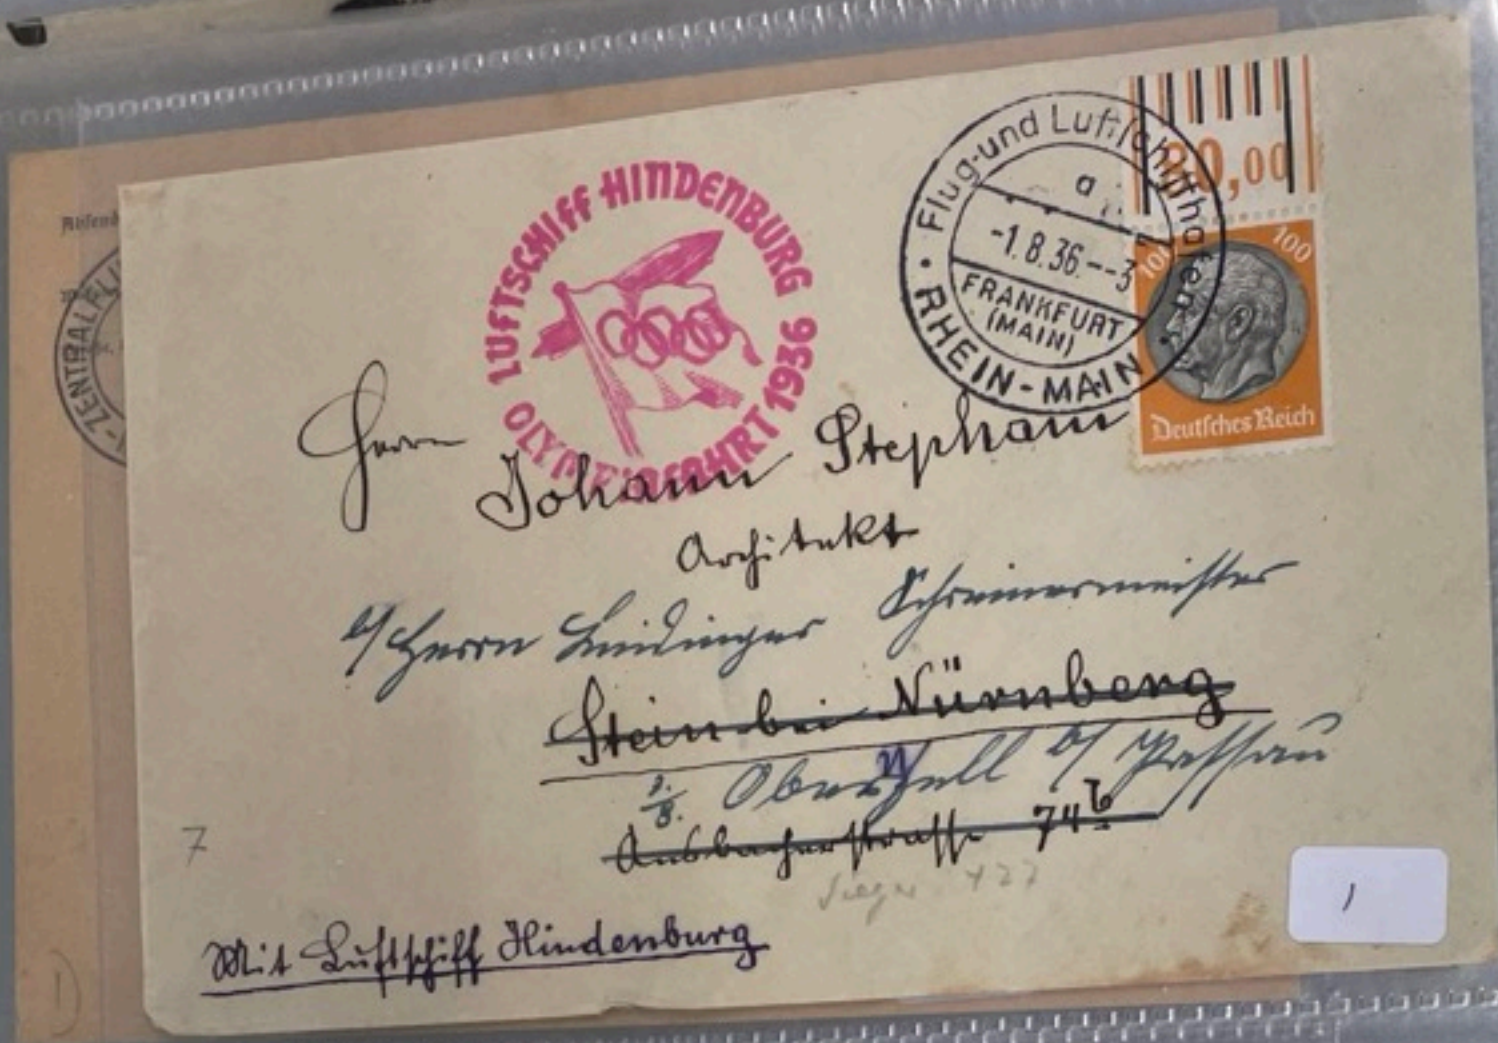 Absend
ZENTRALFL
LUFTSCHIFF HINDENBURG
OLYMPIAFAHRT 1936
Flug- und Luftschiffhafen
a
-1.8.36.--3
FRANKFURT
(MAIN)
RHEIN-MAIN
00,00
100 100
Deutsches Reich
Herrn
Johann Stephan
Architekt
b/ Herrn Leidinger Schreinermeister
Stein bei Nürnberg
Obernzell b/ Passau
Ansbacherstrasse 74 b
7
Sieger 427
Mit Luftschiff Hindenburg
1
1)